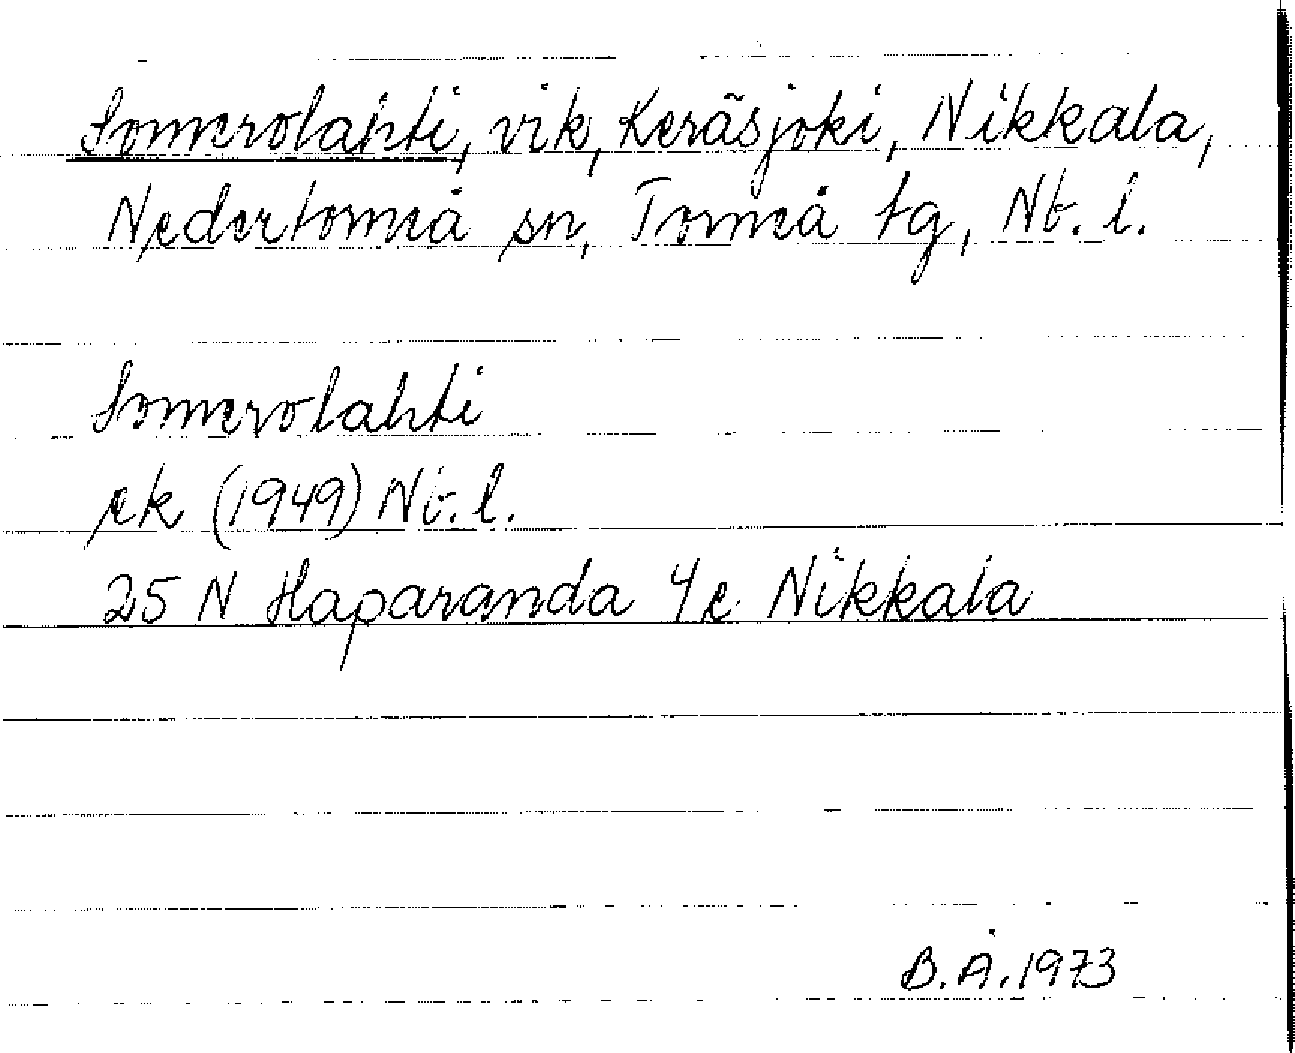 Somerolahti, vik, Keräsjoki, Nikkala,
Nedertorneå sn, Torneå tg, Nb. l.
Somerolahti
ek (1949) Nb. l.
25 N Haparanda 4e Nikkala
B.Å. 1973